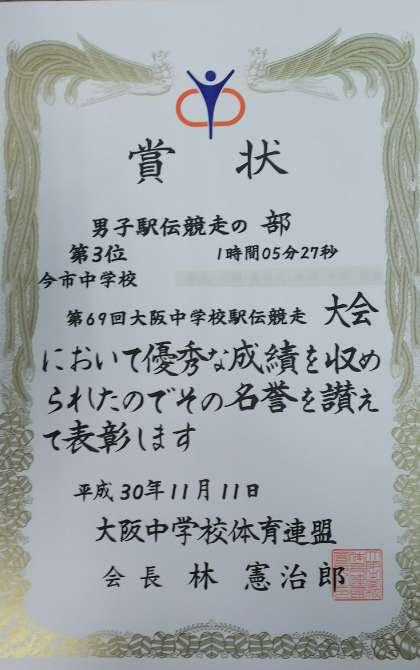 賞 状
男子駅伝競走の 部
第3位 1時間05分27秒
今市中学校
第69回大阪中学校駅伝競走 大会
において優秀な成績を収め
られたのでその名誉を讃え
て表彰します
平成30年11月11日
大阪中学校体育連盟
会長 林 憲治郎